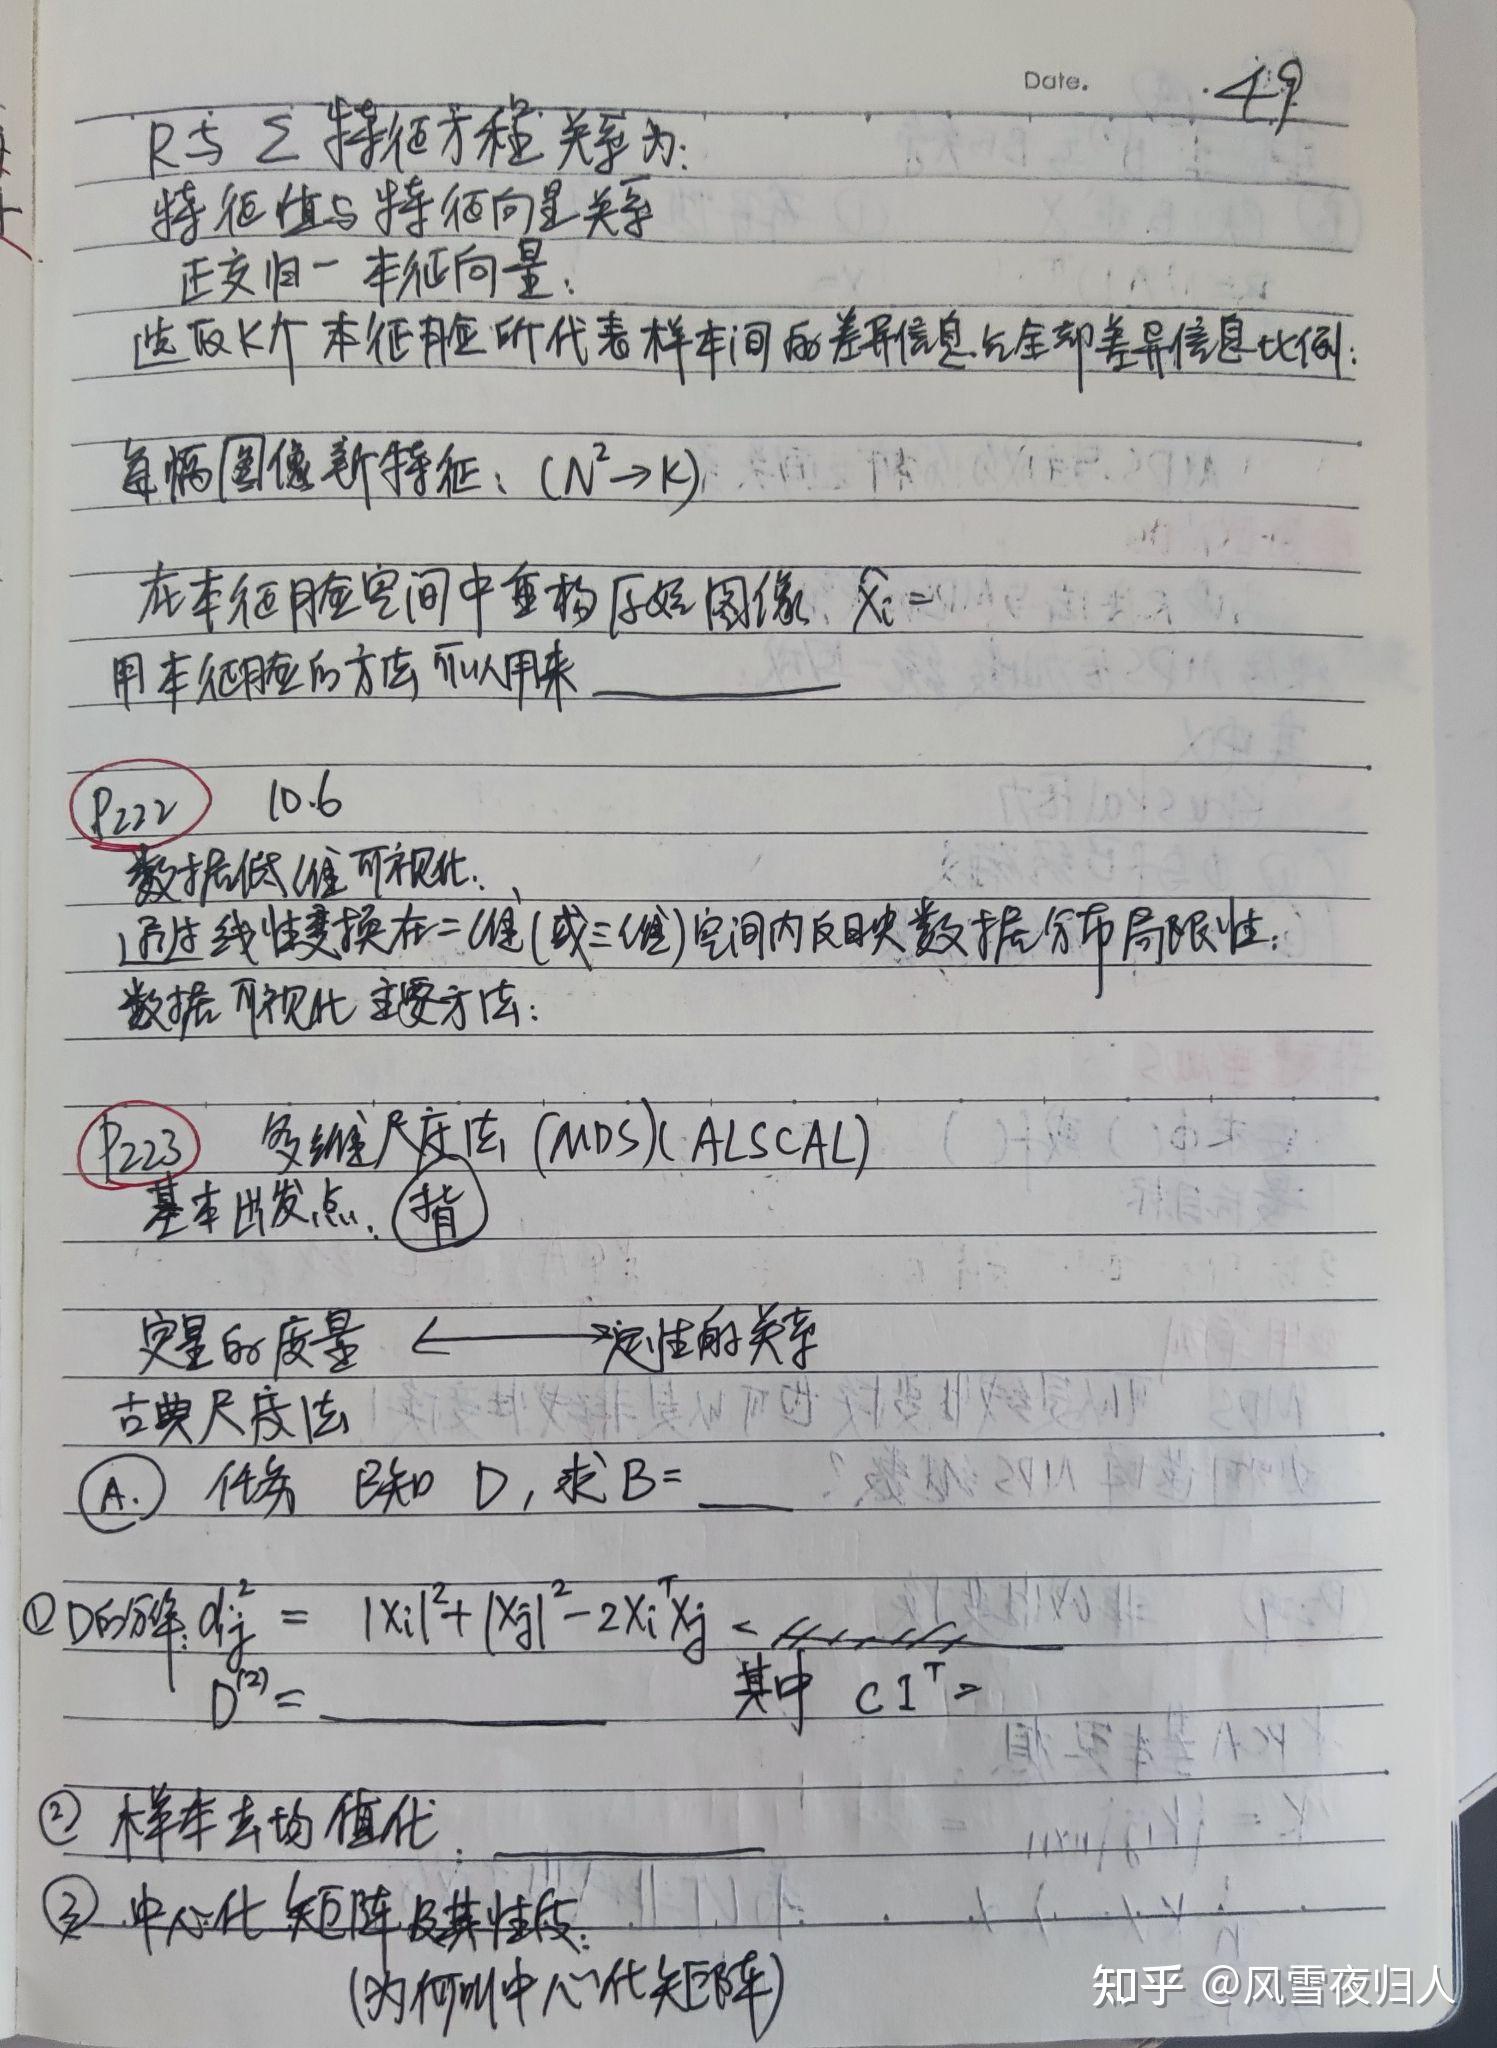 Date. 49
R与Σ特征方程关系为:
特征值与特征向量关系
正交归一本征向量:
选取K个本征脸所代表样本间的差异信息占全部差异信息比例:
每幅图像新特征: (N²→K)
在本征脸空间中重构原始图像 x̂ᵢ=
用本征脸的方法可以用来
P222 10.6
数据低维可视化:
通过线性变换在二维(或三维)空间内反映数据分布局限性:
数据可视化主要方法:
P223 多维尺度法 (MDS)(ALSCAL)
基本出发点: 指
定量的度量 ←→ 定性的关系
古典尺度法
A. 任务 已知 D, 求B=
① D的分解: dᵢⱼ² = |xᵢ|²+|xⱼ|²-2xᵢᵀxⱼ
D⁽²⁾= 其中 c1ᵀ=
② 样本去均值化:
③ 中心化矩阵及其性质:
(为何叫中心化矩阵)
知乎 @风雪夜归人